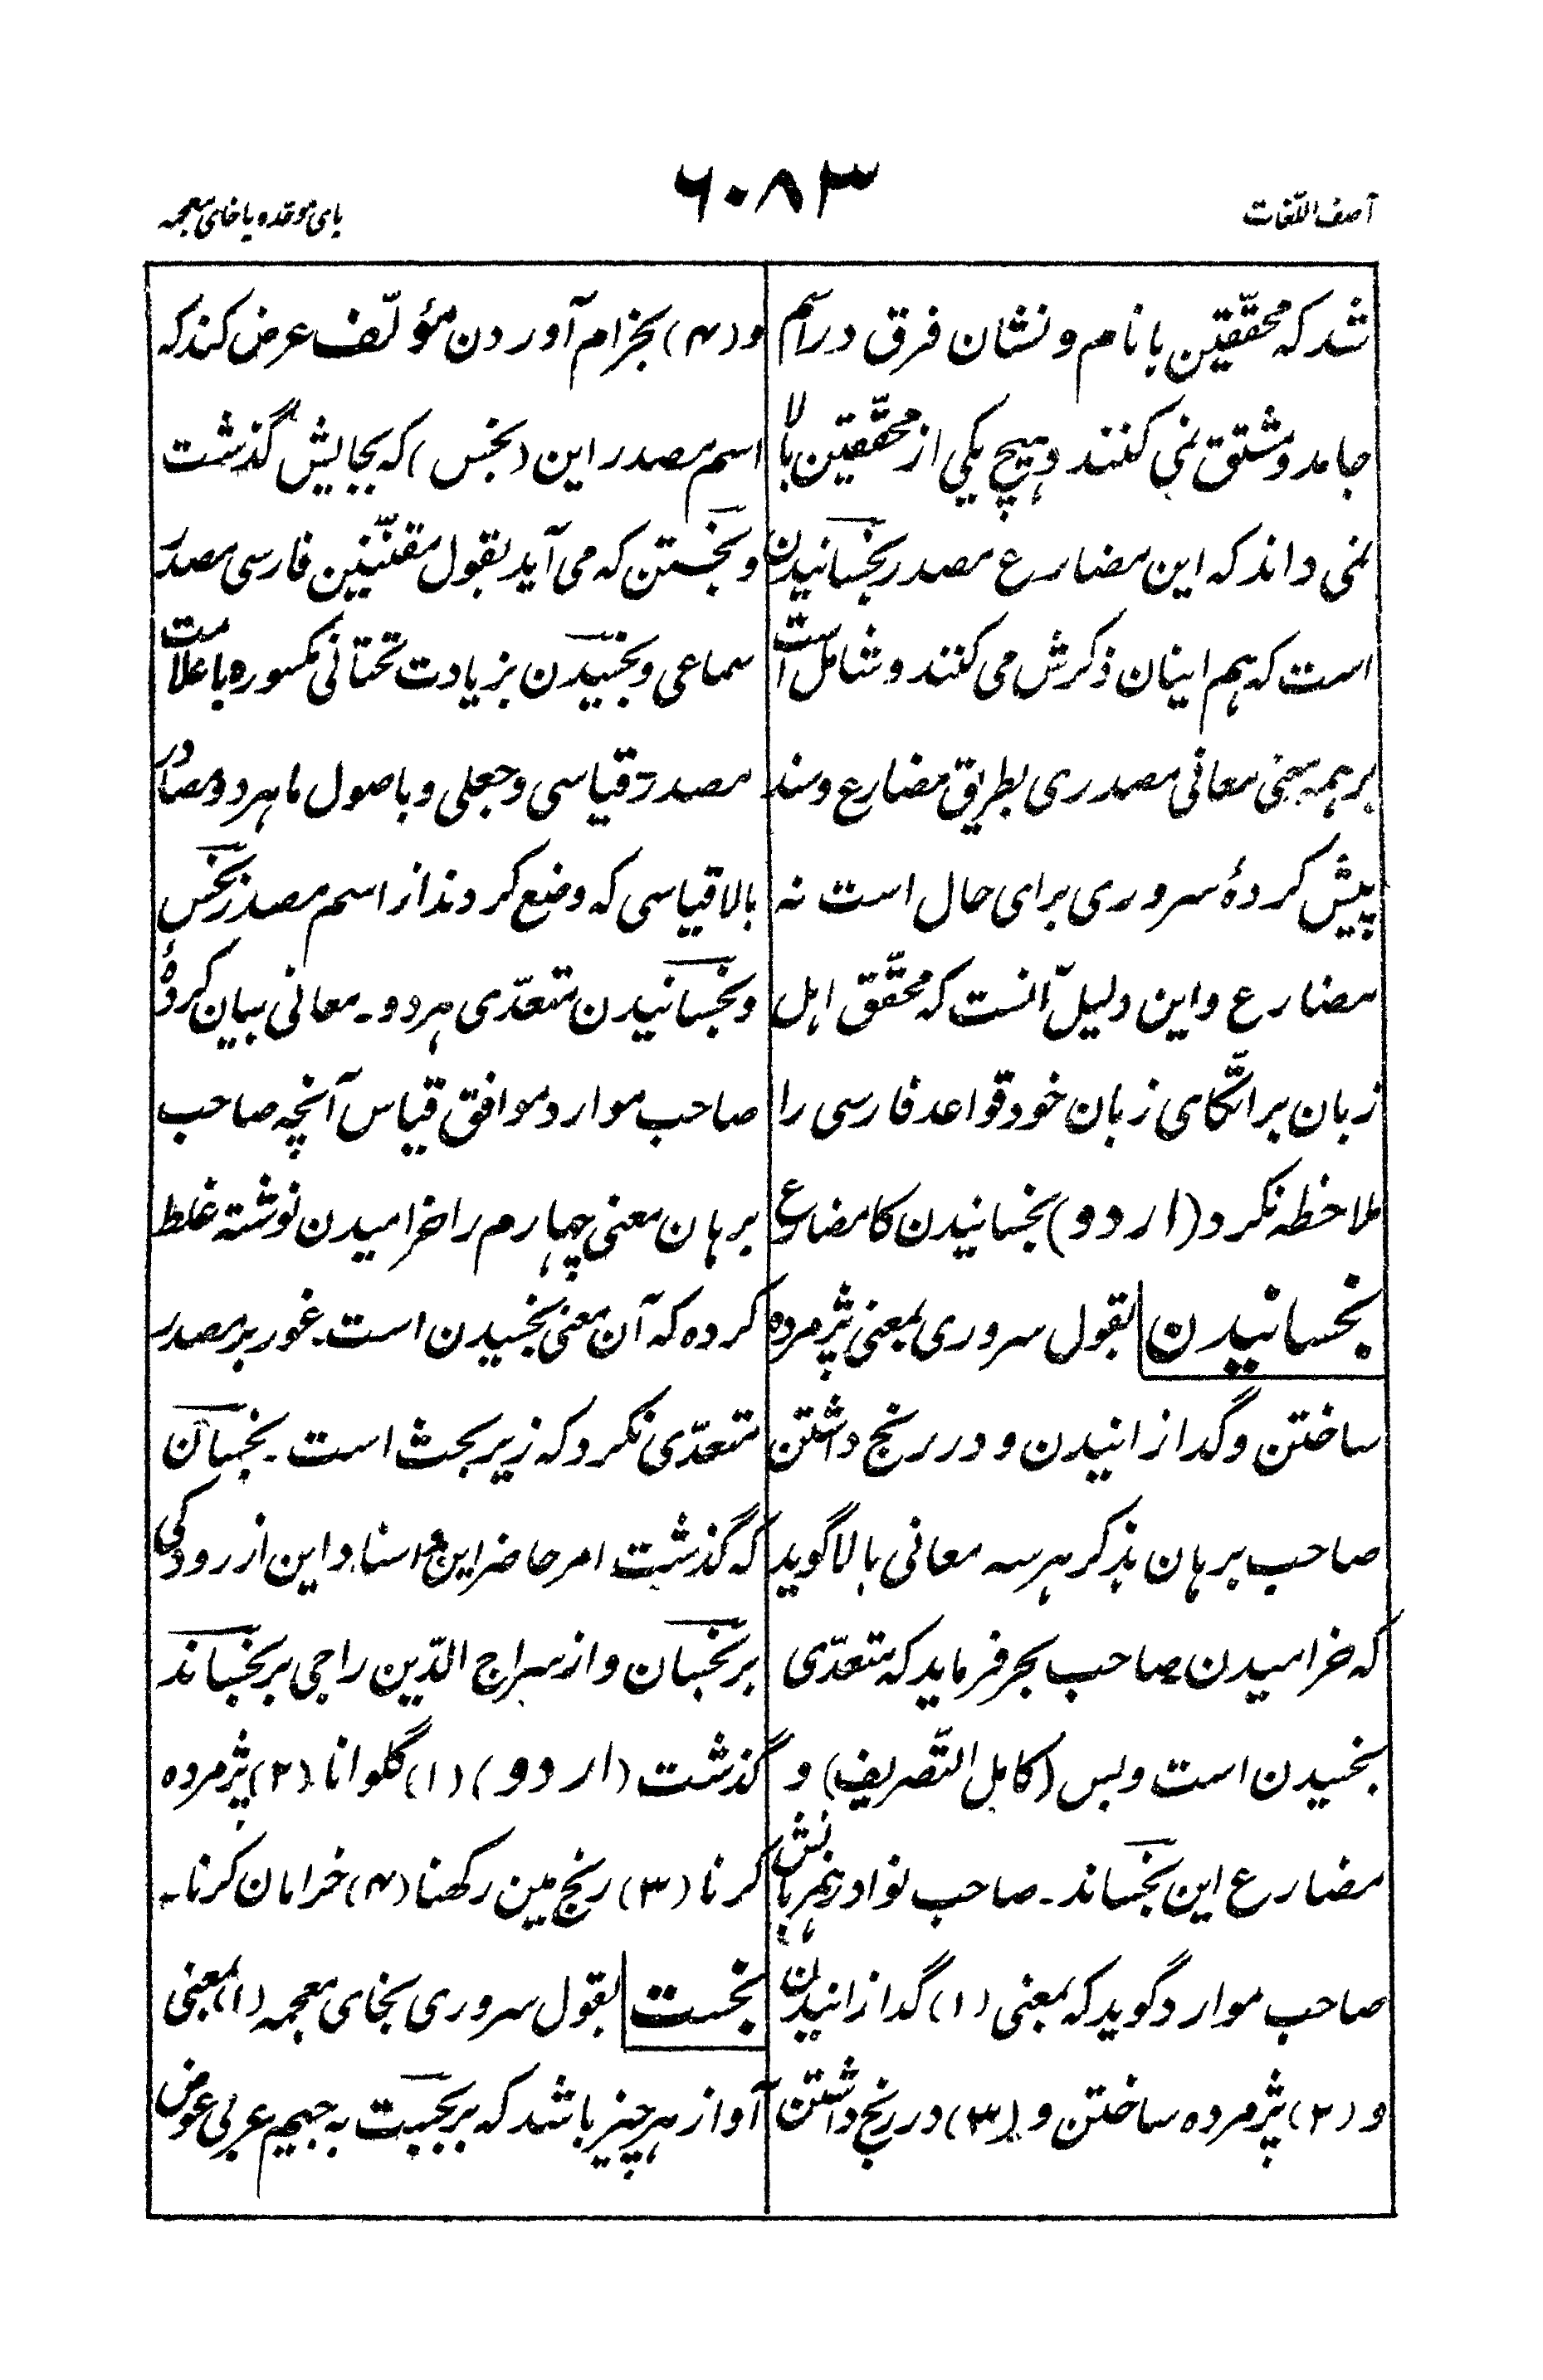 آصف اللّغات
۶۰۸۳
بای موحّده با خای معجمه
شد که محقّقین با نام و نشان فرق در اسم
جامد و مشتق نمی کنند و هیچ یکی از محقّقین بالا
نمی داند که این مضارع مصدر بخسانیدن
است که هم اینان ذکرش می کنند و شامل است
بر همه معنی معانی مصدری بطریق مضارع و سند
پیش کردهٔ سروری برای حال است نه
مضارع و این دلیل آنست که محقّق اهل
زبان بر اتّکای زبان خود قواعد فارسی را
ملاحظه نکرد (اردو) بخسانیدن کا مضارع
بخسانیدن بقول سروری بمعنی پژمرده
ساختن و گدازانیدن و در رنج داشتن
صاحب برهان بذکر هر سه معانی بالا گوید
که خرامیدن صاحب بحر فرماید که متعدّی
بخسیدن است و بس (کامل التّصریف) و
مضارع این بخساند۔ صاحب نوادر همزبانش
صاحب موارد گوید که بمعنی (۱) گدازانیدن
و (۲) پژمرده ساختن و (۳) در رنج داشتن
و (۴) بخرام آوردن مؤلّف عرض کند که
اسم مصدر این (بخس) که بجایش گذشت
و بخستن که می آید بقول مقنّنین فارسی مصدر
سماعی و بخسیدن بزیادت تحتانی مکسوره با علامت
مصدر قیاسی و جعلی و باصول ما هر دو مصادر
بالا قیاسی که وضع کردند از اسم مصدر بخس
و بخسانیدن متعدّی هر دو۔ معانی بیان کردهٔ
صاحب موارد موافق قیاس آنچه صاحب
برهان معنی چهارم را خرامیدن نوشته غلط
کرده که آن معنی بخسیدن است۔ غور بر مصدر
متعدّی نکرد که زیر بحث است۔ بخسان
که گذشت امر حاضر این و اسناد این از رودکی
بر بخسان و از سراج الدّین راجی بر بخساند
گذشت (اردو) (۱) گلوانا (۲) پژمرده
کرنا (۳) رنج مین رکھنا (۴) خرامان کرنا۔
بخست بقول سروری بخای معجمه (۱) بمعنی
آواز هر چیز باشد که بر بجست به جیم عربی عوض